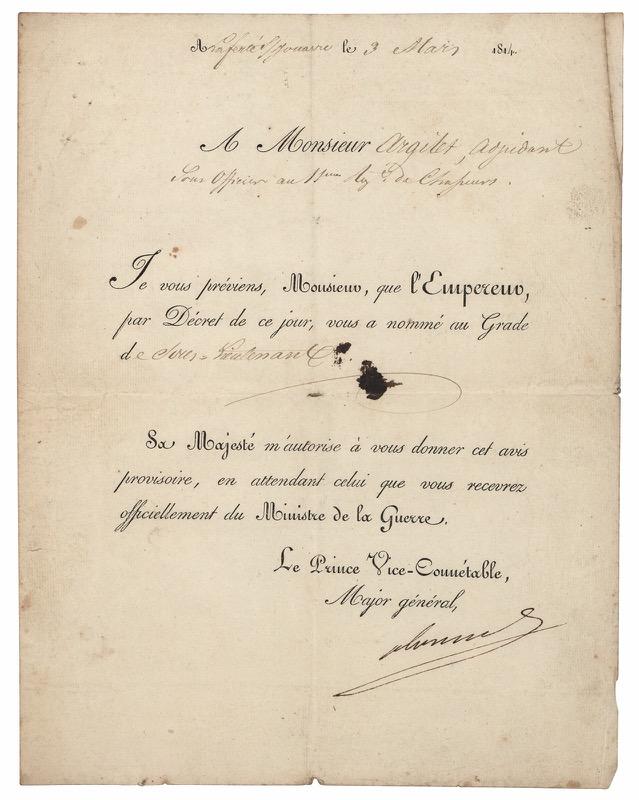 A Laferté S/ Jouarre le 3 Mars 1814.
A Monsieur Argilet, Adjudant
Sous Officier au 11eme Regt. de Chasseurs.
Je vous préviens, Monsieur, que l'Empereur,
par Décret de ce jour, vous a nommé au Grade
de Sous-Lieutenant
Sa Majesté m'autorise à vous donner cet avis
provisoire, en attendant celui que vous recevrez
officiellement du Ministre de la Guerre.
Le Prince Vice-Connétable,
Major général,